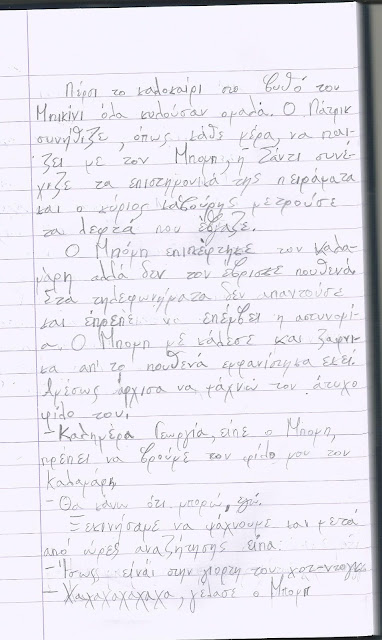 Πέρσι το καλοκαίρι στο βυθό του
Μπικίνι όλα κυλούσαν ομαλά. Ο Πάτρικ
συνήθιζε, όπως κάθε μέρα, να παί-
ζει με τον Μπομπ, η Σάντι συνέ-
χιζε τα επιστημονικά της πειράματα
και ο κύριος καβούρης μετρούσε
τα λεφτά που έβγαζε.
Ο Μπομπ τον καλα-
μάρη αλλά δεν τον έβρισκε πουθενά.
Στα τηλεφωνήματα δεν απαντούσε
και έπρεπε να επέμβει η αστυνομί-
α. Ο Μπομπ με κάλεσε και ξαφνι-
κα απ' το πουθενά εμφανίστηκα εκεί.
Αμέσως άρχισα να ψάχνω τον άτυχο
φίλο του.
-Καλημέρα Γεωργία, είπε ο Μπομπ,
πρέπει να βρούμε τον φίλο μου τον
καλαμάρη
-Θα κάνω ότι μπορώ, εγώ.
Ξεκινήσαμε να ψάχνουμε και μετά
από ώρες αναζήτησης είπα:
-Ίσως είναι στην γιορτή του χοτ-ντογκ
-Χαχαχαχαχαχα, γέλασε ο Μπομπ